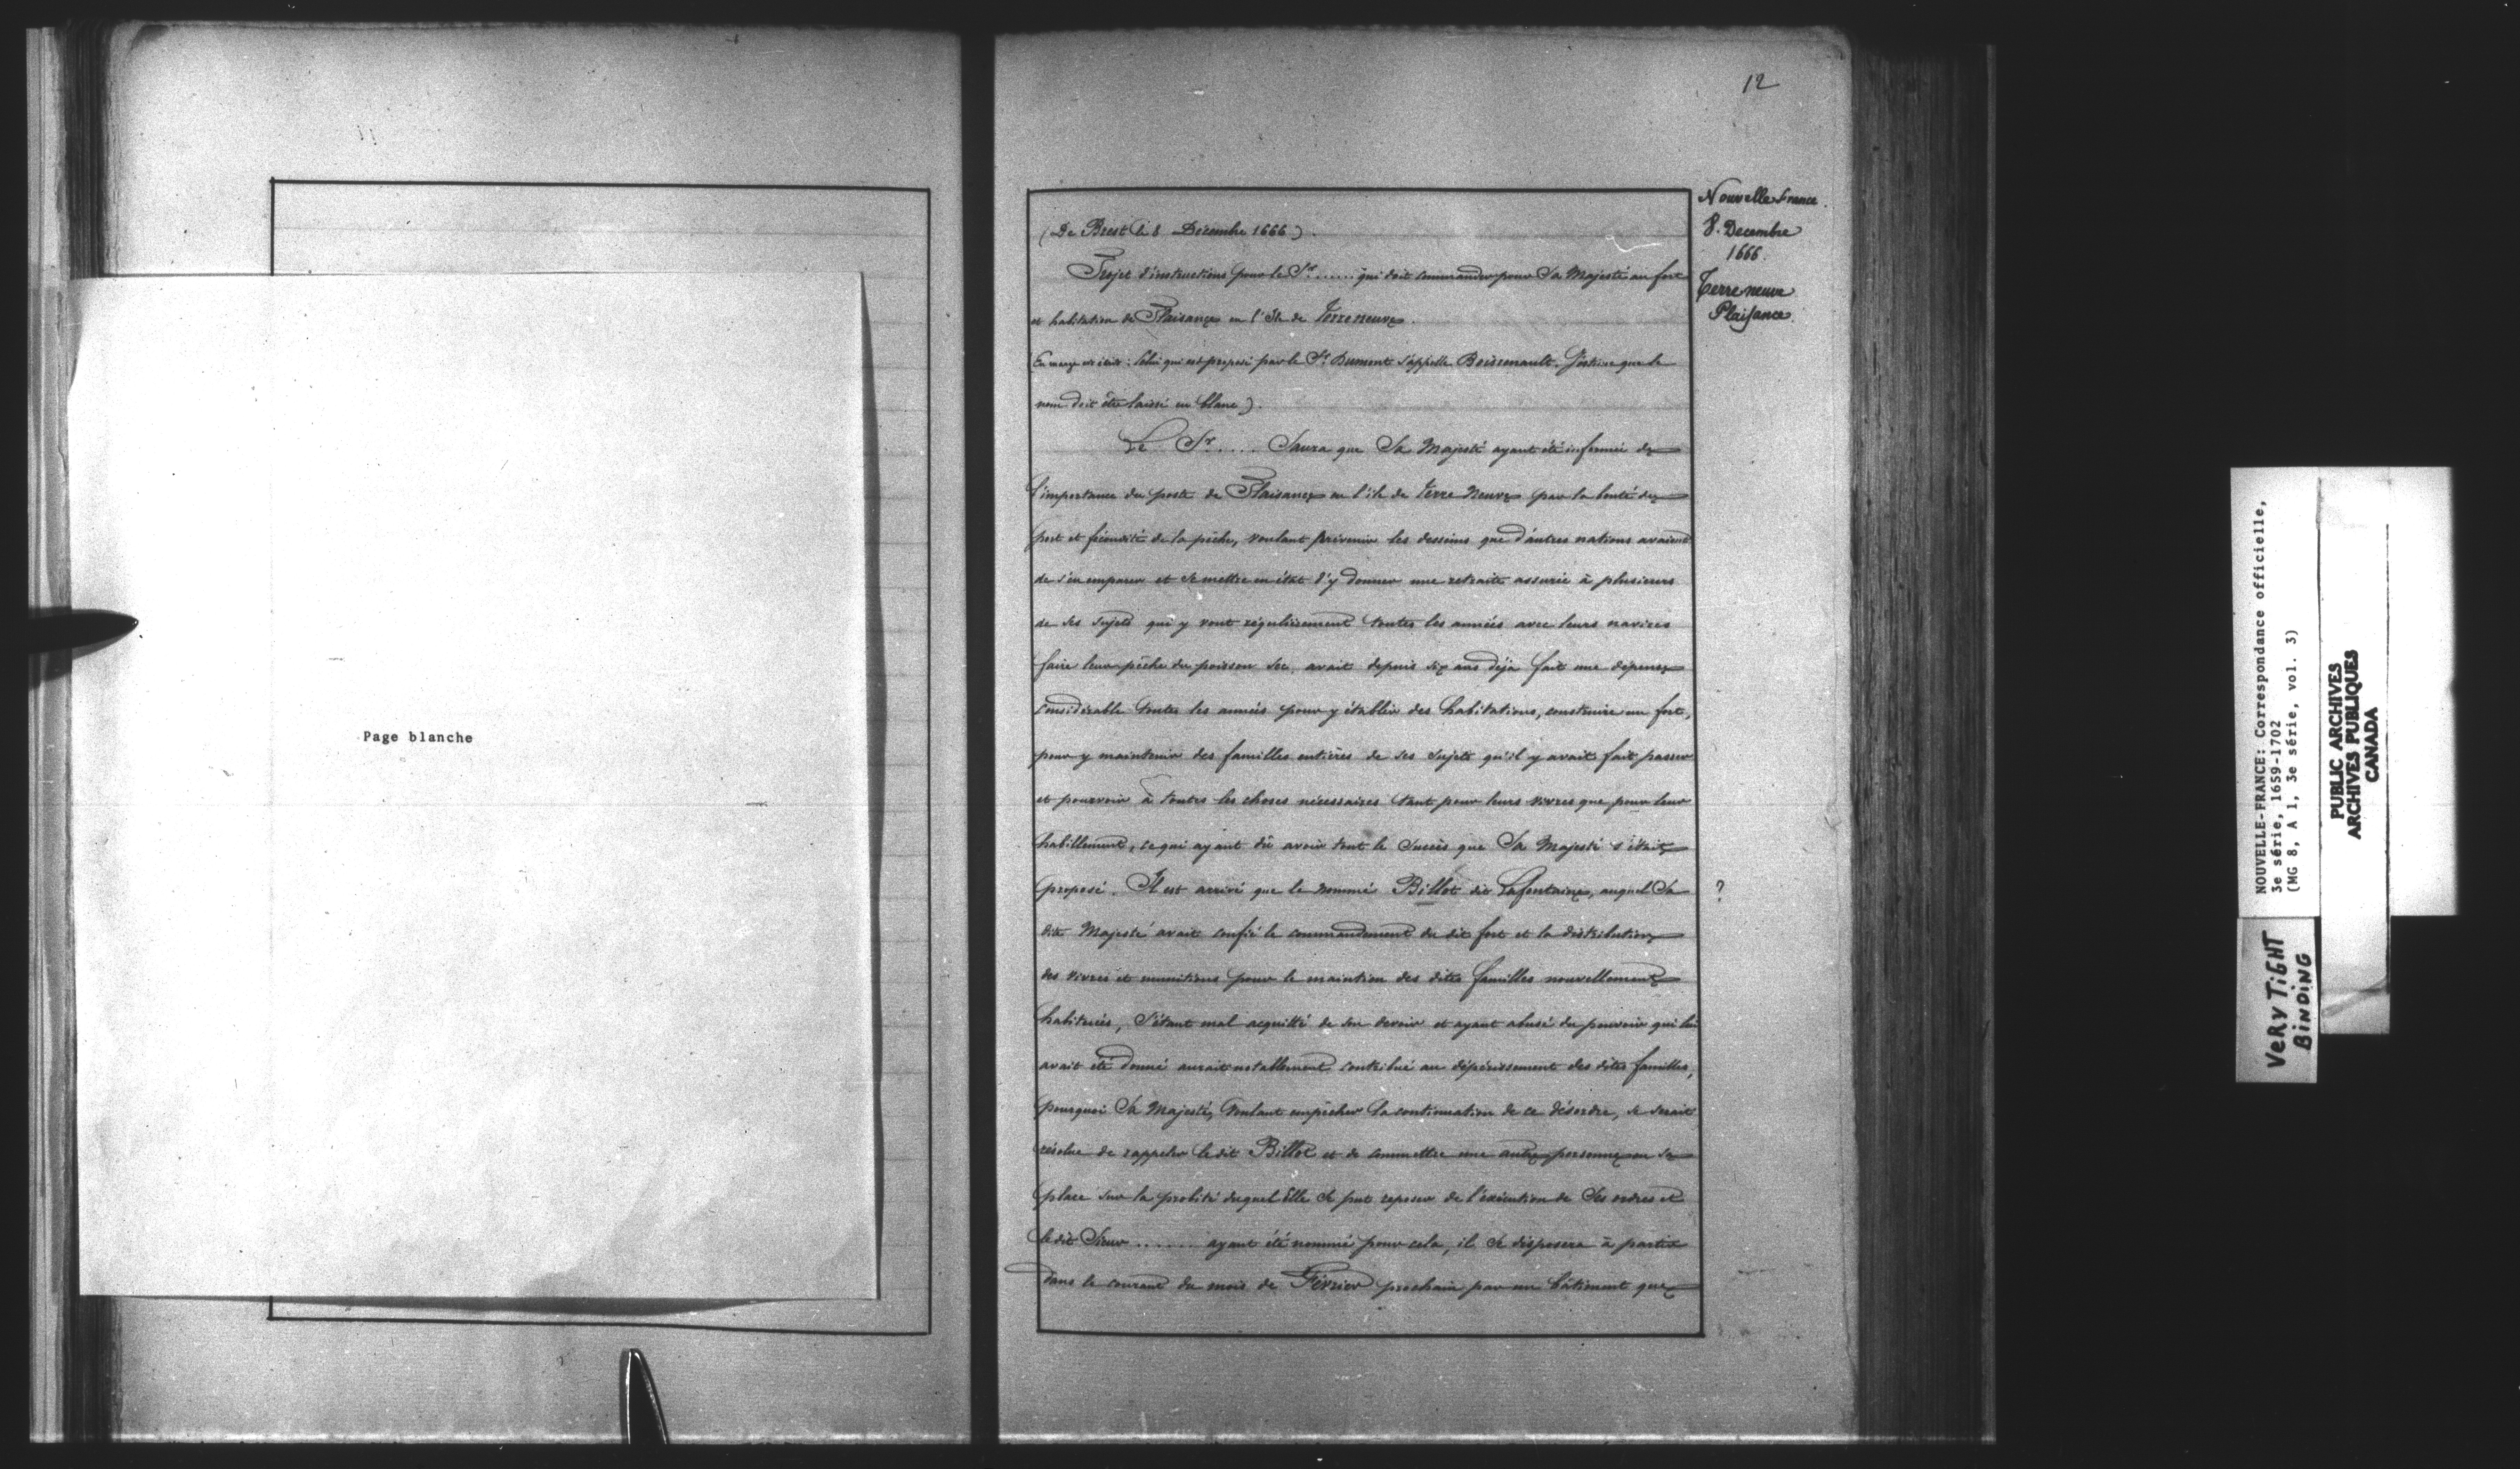 Page blanche
12
Nouvelle france.
8. Decembre
1666.
Terre neuve
Plaisance.
(De Brest le 8 Décembre 1666).
Projet d'instructions pour le Sr ...... qui doit commander pour Sa Majesté au fort
et habitation de Plaisance en l'Ile de Terreneuve.
En marge est écrit : Celui qui est proposé par le Sr Dumont s'appelle Boissenault. J'estime que le
nom doit être laissé en blanc).
Le Sr.... Saura que Sa Majesté ayant été informée de
l'importance du poste de Plaisance en l'ile de Terre Neuve par la bonté du
port et fécondité de la pêche, voulant prévenir les desseins que d'autres nations avaient
de s'en emparer et se mettre en état d'y donner une retraite assurée à plusieurs
de ses sujets qui y vont régulièrement toutes les années avec leurs navires
faire leur pêche du poisson sec, avait depuis six ans déja fait une dépense
considérable toutes les années pour y établir des habitations, construire un fort,
pour y maintenir des familles entières de ses sujets qu'il y avait fait passer
et pourvoir à toutes les choses nécessaires tant pour leurs vivres que pour leur
habillement, ce qui ayant dû avoir tout le succès que Sa Majesté s'était
proposé. Il est arrivé que le nommé Billot dit Lafontaine, auquel Sa
?
dite Majesté avait confié le commandement du dit fort et la distribution
des vivres et munitions pour le maintien des dites familles nouvellement
habituées, s'étant mal acquitté de son devoir et ayant abusé du pouvoir qui lui
avait été donné aurait notablement contribué au dépérissement des dites familles,
pourquoi Sa Majesté, voulant empêcher la continuation de ce désordre, se serait
résolue de rappeler le dit Billot et de commettre une autre personne en sa
place sur la probité duquel Elle se put reposer de l'exécution de Ses ordres et
le dit Sieur ...... ayant été nommé pour cela, il se disposera à partir
dans le courant du mois de Février prochain par un bâtiment que
NOUVELLE-FRANCE: Correspondance officielle,
3e série, 1659-1702
(MG 8, A 1, 3e série, vol. 3)
PUBLIC ARCHIVES
ARCHIVES PUBLIQUES
CANADA
VERY TiGHT
BiNDiNG